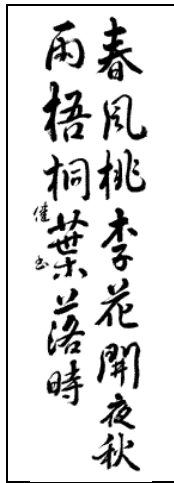 春风桃李花開夜秋
雨梧桐葉落時
健書